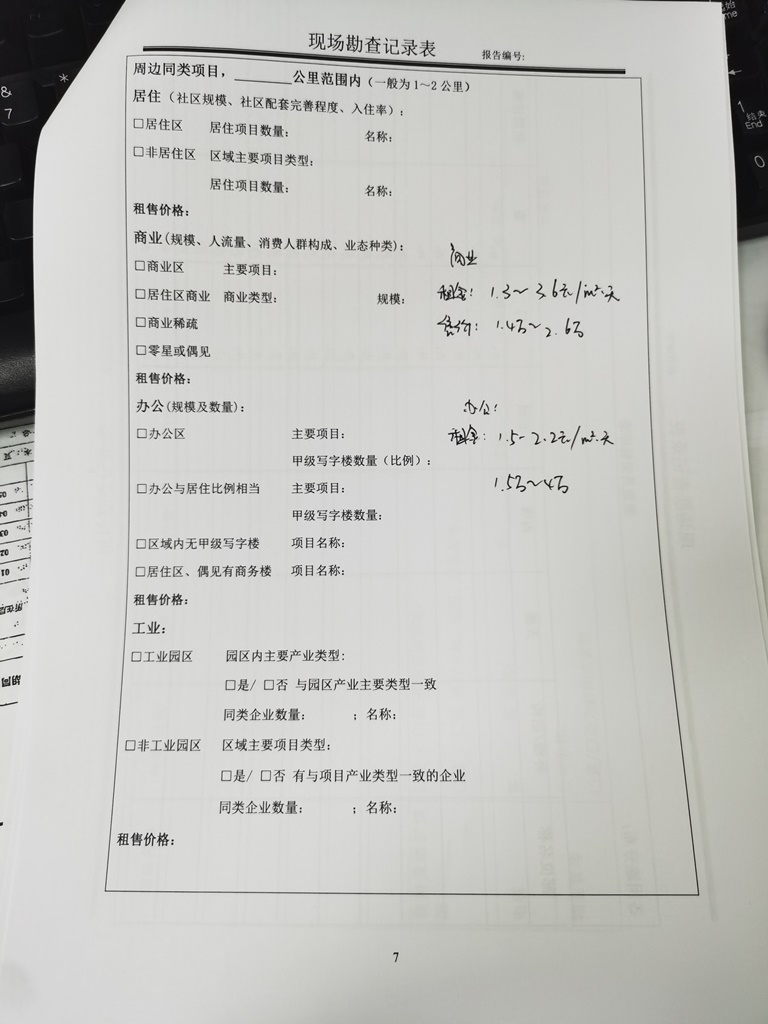 现场勘查记录表
报告编号:
周边同类项目，______公里范围内（一般为1～2公里）
居住（社区规模、社区配套完善程度、入住率）:
□居住区 居住项目数量: 名称:
□非居住区 区域主要项目类型:
居住项目数量: 名称:
租售价格:
商业(规模、人流量、消费人群构成、业态种类):
商业
□商业区 主要项目:
□居住区商业 商业类型: 规模:
租金: 1.3～3.6元/m².天
□商业稀疏
售价: 1.4万～2.6万
□零星或偶见
租售价格:
办公(规模及数量):
办公:
□办公区 主要项目:
租金: 1.5-2.2元/m².天
甲级写字楼数量(比例):
□办公与居住比例相当 主要项目:
1.5万～4万
甲级写字楼数量:
□区域内无甲级写字楼 项目名称:
□居住区、偶见有商务楼 项目名称:
租售价格:
工业:
□工业园区 园区内主要产业类型:
□是/ □否 与园区产业主要类型一致
同类企业数量: ；名称:
□非工业园区 区域主要项目类型:
□是/ □否 有与项目产业类型一致的企业
同类企业数量: ；名称:
租售价格:
7
&
7
*
1
End
结束
0
me
05
04
03
02
01